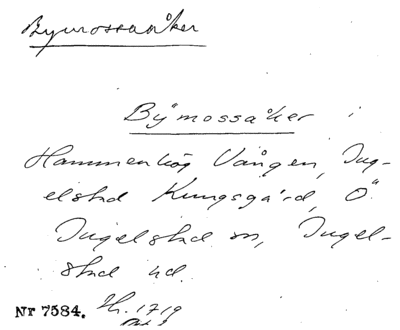 Bymossaåker
Bÿmossaåker i
Hammenhög Vången, Ing-
elstad Kungsgård, Ö.
Ingelstad sn, Ingel-
stad hd.
Nr 7584. 1719